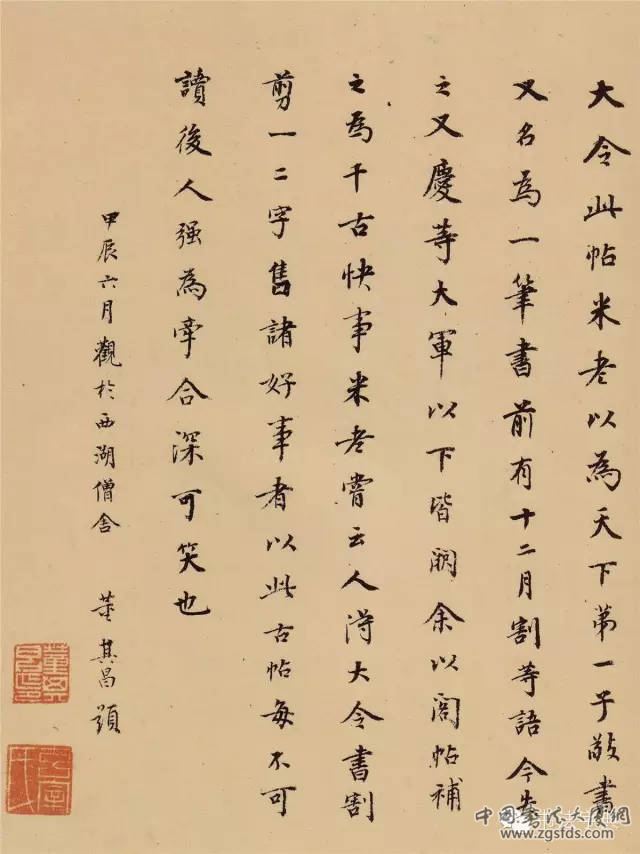 大令此帖米老以為天下第一子敬書
又名為一筆書前有十二月割等語今失
之又慶等大軍以下皆闕余以閣帖補
之為千古快事米老嘗云人得大令書割
剪一二字售諸好事者以此古帖每不可
讀後人強為牽合深可笑也
甲辰六月觀於西湖僧舍 董其昌題
中国书法大厦网
www.zgsfds.com